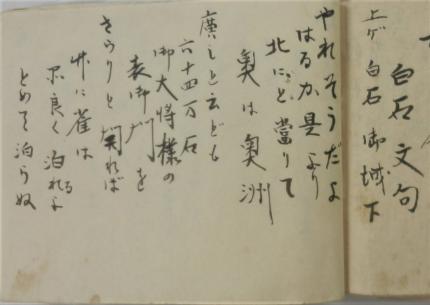 白石文句
上ゲ 白石御城下
やれそうだよ
はるか具より
北にと當りて
奥は奥洲
廣しと云ども
六十四万石
御大将様の
表御門を
きらりと開れば
竹に雀は
品良く泊れよ
とめて泊らぬ